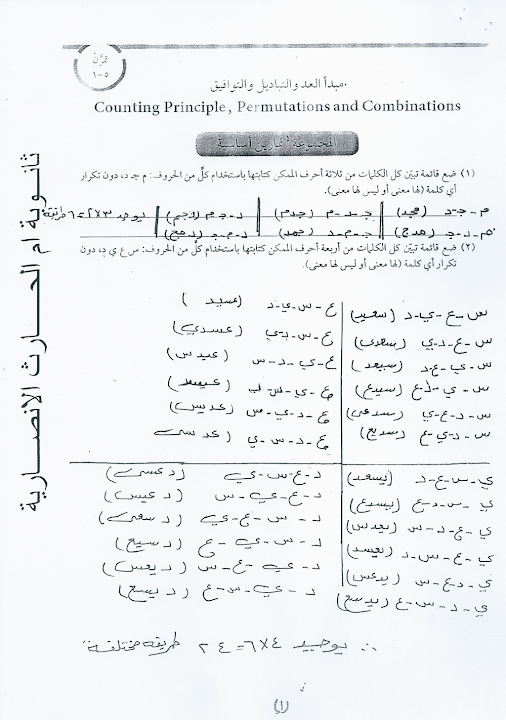 تمرّن
٥-١
مبدأ العد والتباديل والتوافيق
Counting Principle, Permutations and Combinations
المجموعة أ تمارين أساسية
(١) ضع قائمة تبيّن كل الكلمات من ثلاثة أحرف الممكن كتابتها باستخدام كلّ من الحروف: م جـ د، دون تكرار
أي كلمة (لها معنى أو ليس لها معنى).
م - جـ - د (مجد) جـ - د - م (جدم) د - جـ - م (دجم) يوجد ٣×٢=٦ طريقة
م - د - جـ (مدج) جـ - م - د (جمد) د - م - جـ (دمج)
(٢) ضع قائمة تبيّن كل الكلمات من أربعة أحرف الممكن كتابتها باستخدام كلّ من الحروف: س ع ي د، دون
تكرار أي كلمة (لها معنى أو ليس لها معنى).
س - ع - ي - د (سعيد) ع - س - ي - د (عسيد)
س - ع - د - ي (سعدي) ع - س - د - ي (عسدي)
س - ي - ع - د (سيعد) ع - ي - د - س (عيدس)
س - ي - د - ع (سيدع) ع - ي - س - د (عيسد)
س - د - ع - ي (سدعي) ع - د - ي - س (عديس)
س - د - ي - ع (سديع) ع - د - س - ي (عدسي)
ي - س - ع - د (يسعد) د - ع - س - ي (دعسي)
ي - س - د - ع (يسدع) د - ع - ي - س (دعيس)
ي - ع - د - س (يعدس) د - س - ع - ي (دسعي)
ي - ع - س - د (يعسد) د - س - ي - ع (دسيع)
ي - د - ع - س (يدعس) د - ي - ع - س (ديعس)
ي - د - س - ع (يدسع) د - ي - س - ع (ديسع)
∴ يوجد ٤×٦ = ٢٤ طريقة مختلفة
(١)
ثانوية ام الحارث الانصارية